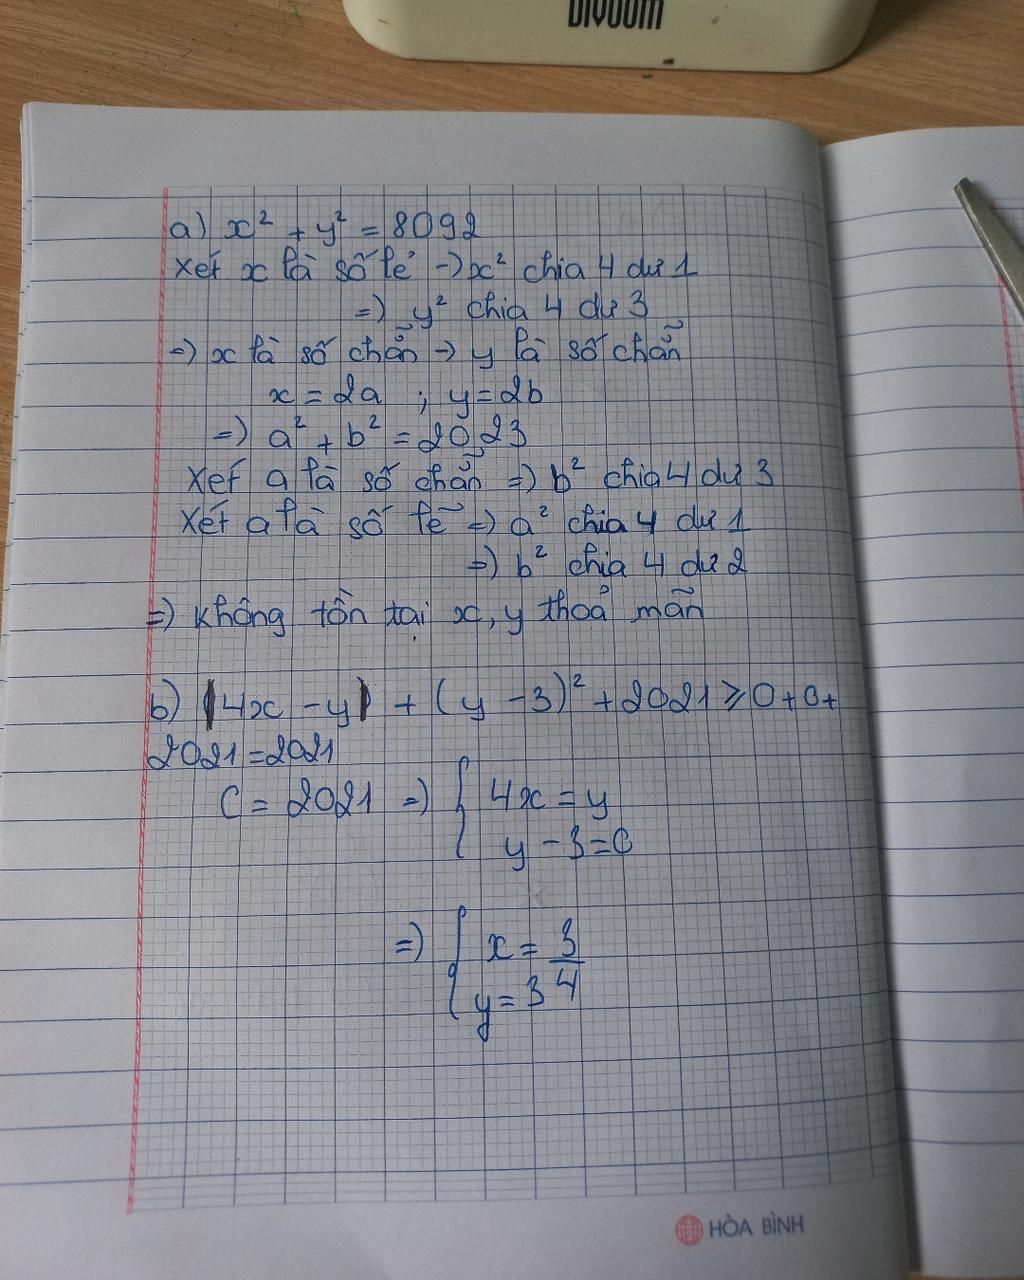 DIVOOM
a) x² + y² = 8092
Xét x là số lẻ → x² chia 4 dư 1
=) y² chia 4 dư 3
=) x là số chẵn → y là số chẵn
x = 2a ; y = 2b
=) a² + b² = 2023
Xét a là số chẵn =) b² chia 4 dư 3
Xét a là số lẽ =) a² chia 4 dư 1
=) b² chia 4 dư 2
=) không tồn tại x, y thoả mãn
b) |4x - y| + (y - 3)² + 2021 ⩾ 0 + 0 +
2021 = 2021
C = 2021 =) { 4x = y
y - 3 = 0
=) { x = 3/4
y = 3
HÒA BÌNH